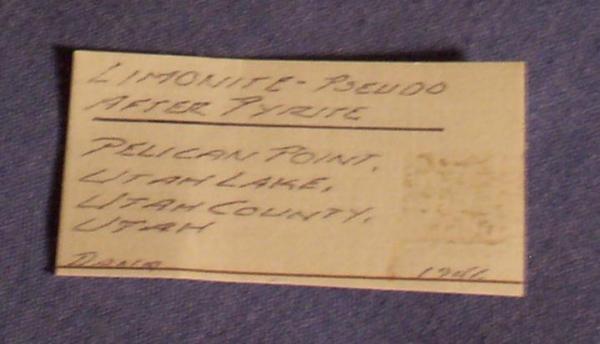 LIMONITE - PSEUDO
AFTER PYRITE
PELICAN POINT,
UTAH LAKE,
UTAH COUNTY,
UTAH
DANA